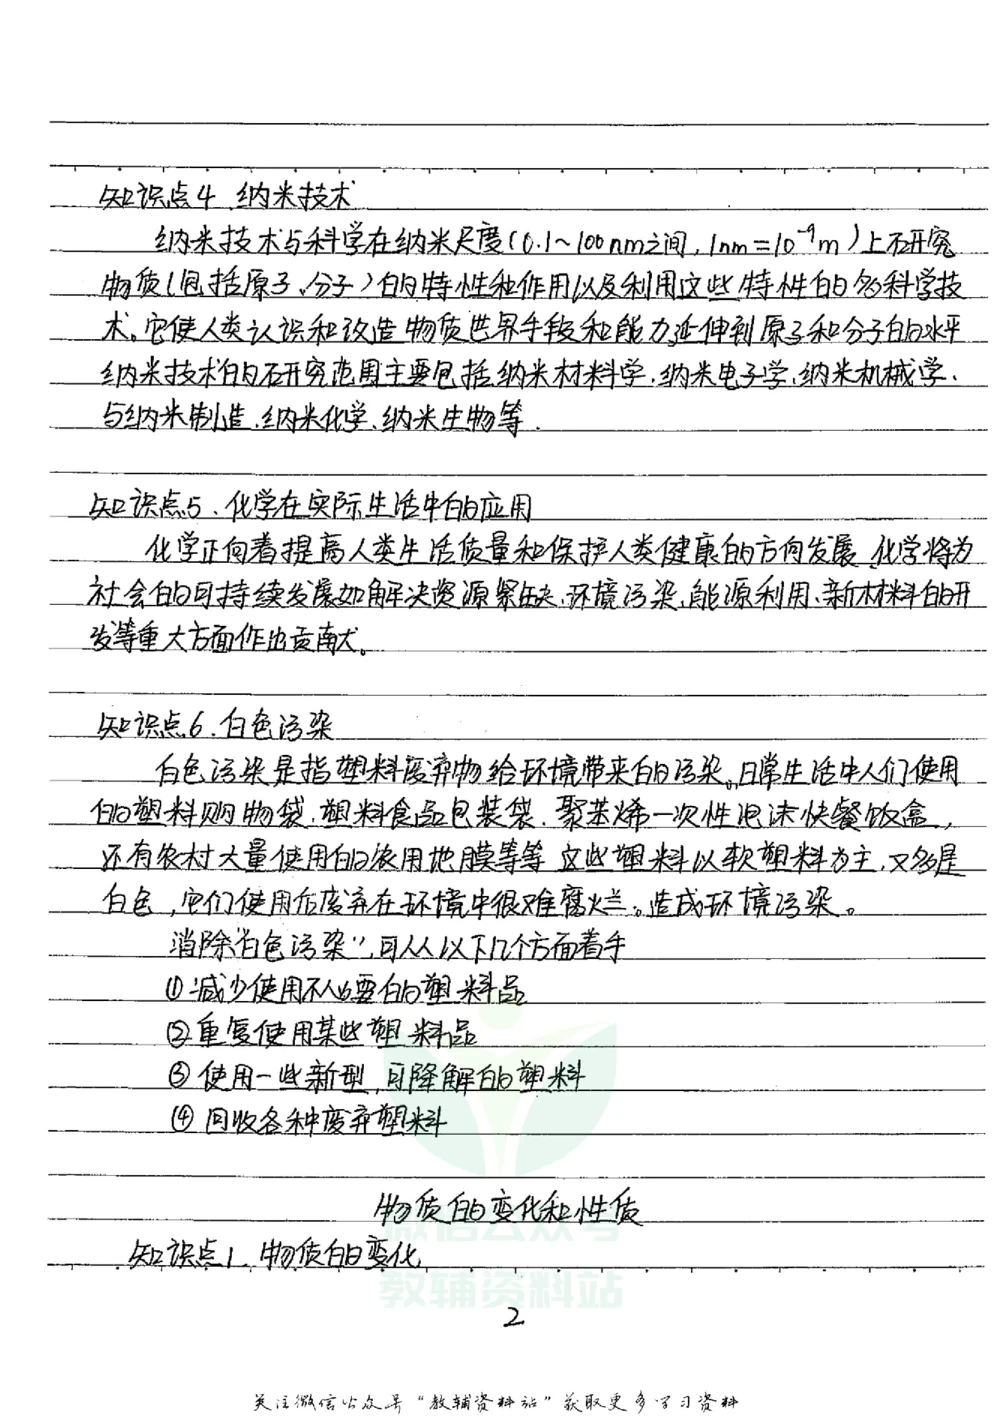 知识点4、纳米技术
纳米技术与科学在纳米尺度(0.1~100nm之间,1nm=10⁻⁹m)上研究
物质(包括原子、分子)的特性和作用以及利用这些特性的多科学技
术。它使人类认识和改造物质世界手段和能力延伸到原子和分子的水平
纳米技术的研究范围主要包括纳米材料学、纳米电子学、纳米机械学、
与纳米制造、纳米化学、纳米生物等.
知识点5、化学在实际生活中的应用
化学正向着提高人类生活质量和保护人类健康的方向发展、化学将为
社会的可持续发展如解决资源紧缺、环境污染、能源利用、新材料的开
发等重大方面作出贡献。
知识点6.白色污染
白色污染是指塑料废弃物给环境带来的污染。日常生活中人们使用
的塑料购物袋、塑料食品包装袋、聚苯烯一次性泡沫快餐饭盒,
还有农村大量使用的农用地膜等等 这些塑料以软塑料为主,又多是
白色,它们使用后废弃在环境中很难腐烂。造成环境污染。
消除"白色污染",可从以下几个方面着手
①减少使用不必要的塑料品
②重复使用某些塑料品
③使用一些新型,可降解的塑料
④回收各种废弃塑料
物质的变化和性质
微信公众号
知识点1.物质的变化
教辅资料站
2
关注微信公众号"教辅资料站"获取更多学习资料